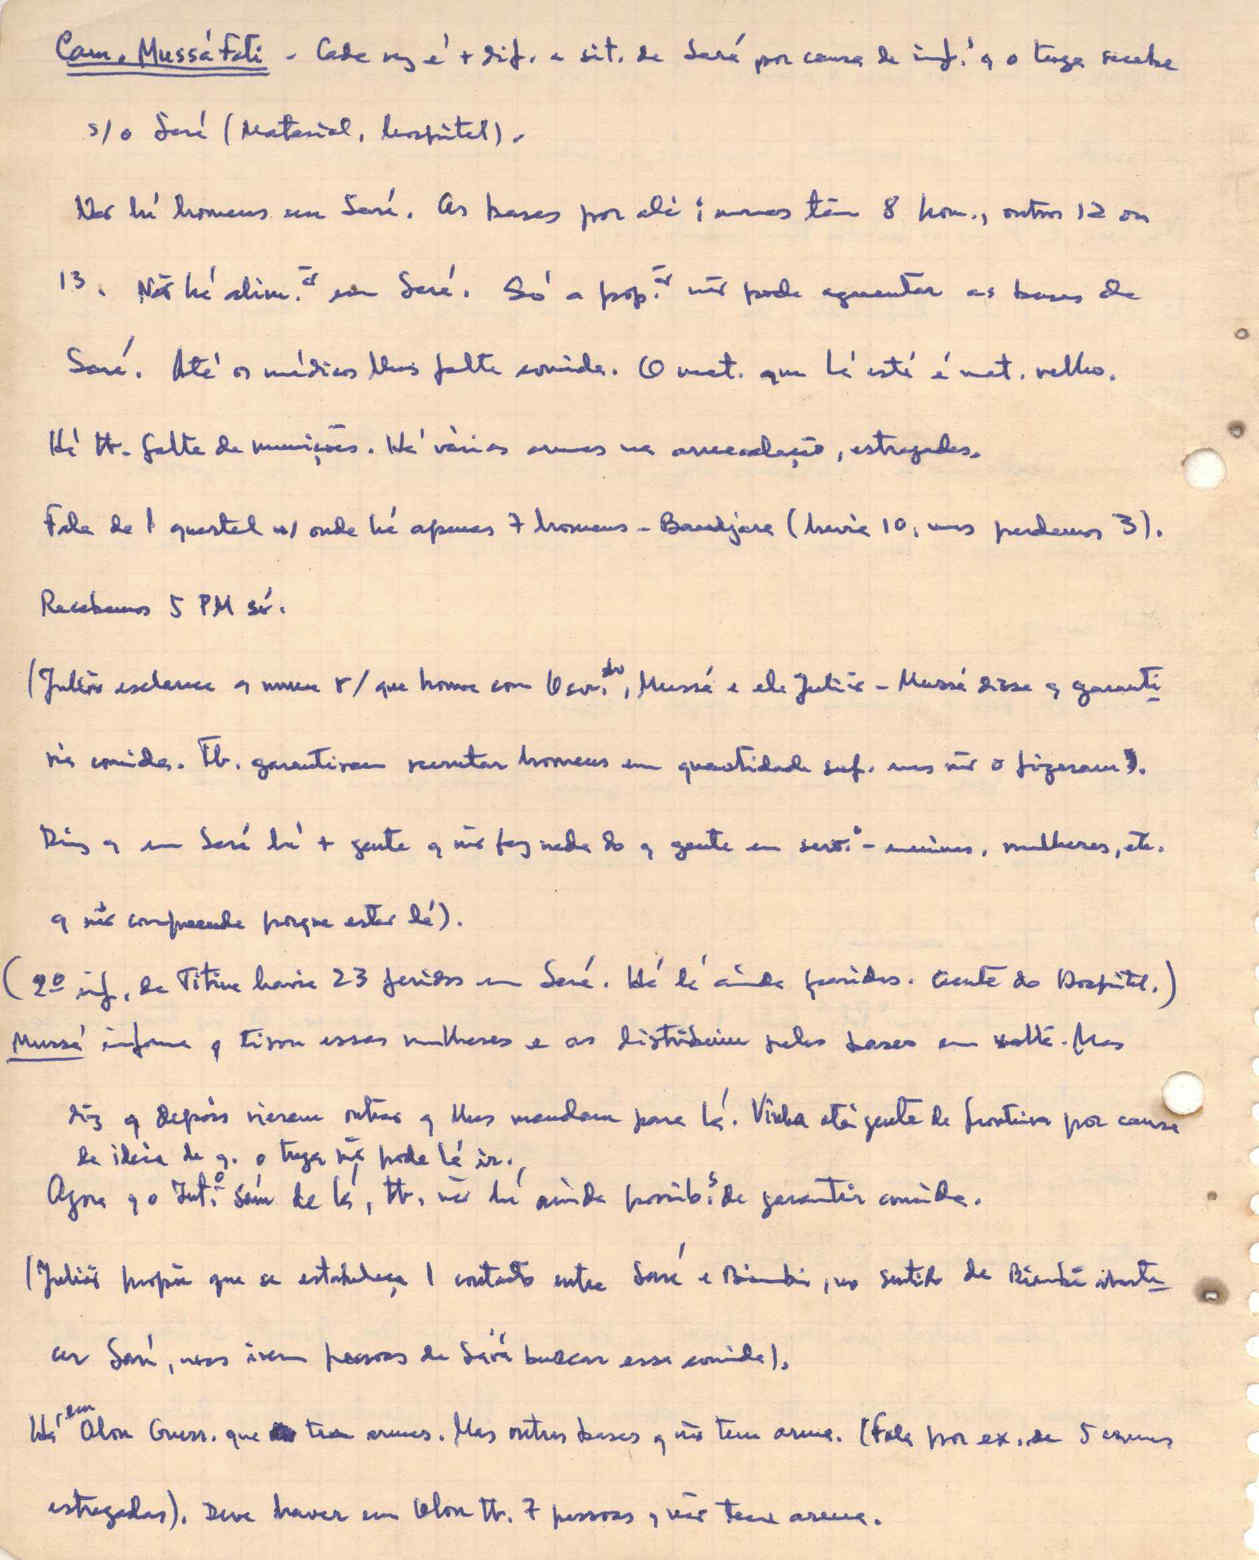 Cam. Mussá Fati - Cada vez é + dif. a sit. de Sará por causa de inf.s q o tuga recebe
s/ o Sará (Material, hospital).
Não há homens em Sará. As bases por ali: umas têm 8 hom., outros 12 ou
13. Não há alim.ão em Sará. Só a pop.ão não pode aguentar as bases de
Sará. Até os médicos lhes falta comida. O mat. que lá está é mat. velho.
Há tb. falta de munições. Há várias armas na arrecadação, estragadas.
Fala de 1 quartel onde há apenas 7 homens - Bandjara (havia 10, mas perdemos 3).
Recebemos 5 PM só.
(Julião esclarece q numa r/ que houve com Osv.do, Mussá e ele Julião - Mussá disse q garanti
ria comida. Tb. garantiram recrutar homens em quantidade suf. mas não o fizeram).
Diz q em Sará há + gente q não faz nada do q gente em serv.o - meninos, mulheres, etc.
q não compreende porque estar lá).
(2º inf. de Titina havia 23 feridos em Sará. Há lá ainda feridos. Gente do Hospital.)
Mussá informa q tirou essas mulheres e as distribuiu pelas bases em volta. Mas
diz q depois vieram outras q lhes mandam para lá. Vinha até gente da fronteira por causa
da ideia de q. o tuga não pode lá ir.
Agora q o Jul.o saiu de lá, tb. não há ainda possib.s de garantir comida.
(Julião propõe que se estabeleça 1 contacto entre Sará e Biambi, no sentido de Biambi abaste
cer Sará, mas irem pessoas de Sará buscar essa comida).
Há em Olon Guerr. que tem armas. Mas outras bases q não tem arma. (Fala por ex. de 5 armas
estragadas). Deve haver em Olon tb. 7 pessoas q não tem arma.